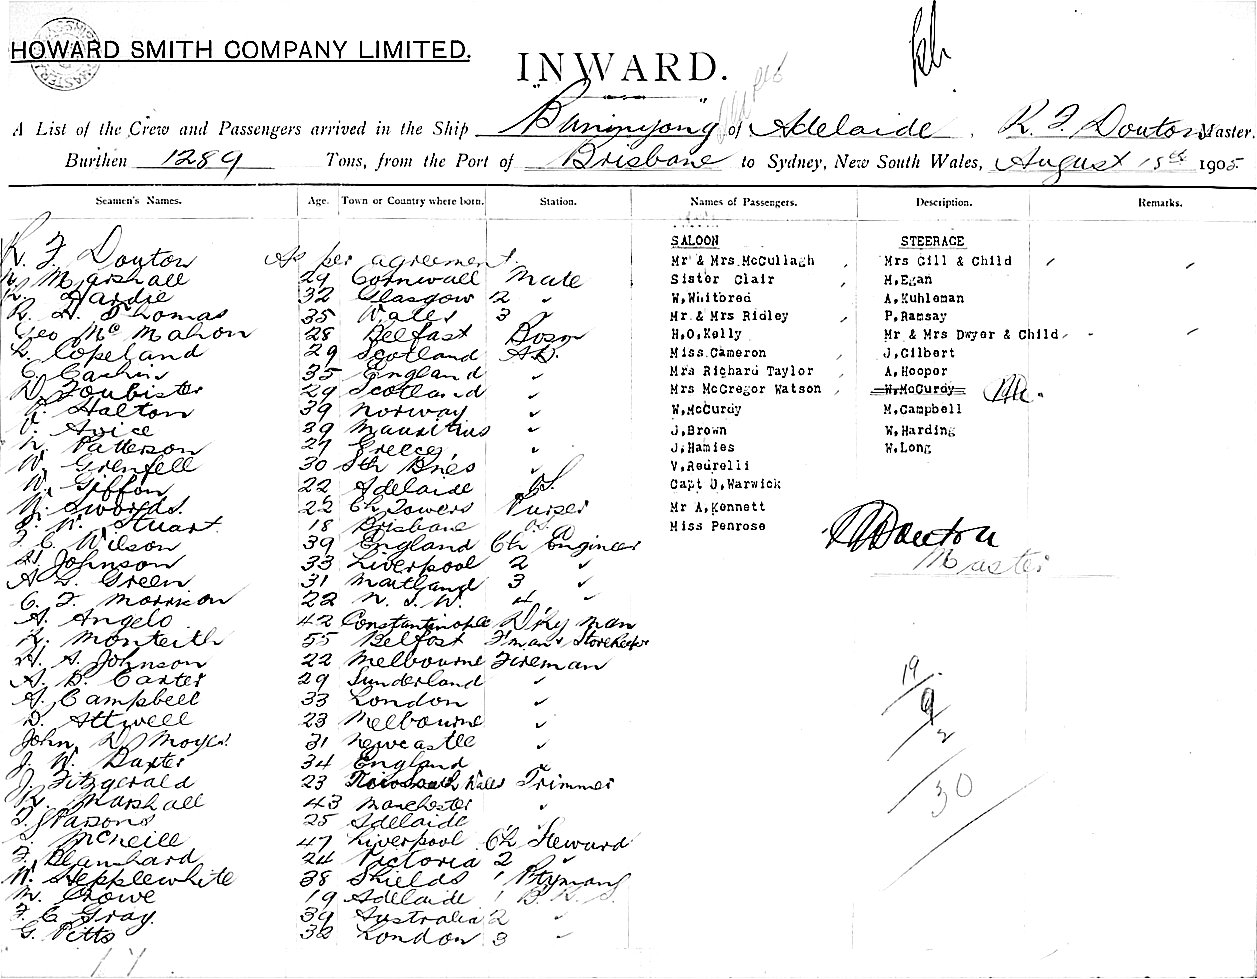 HOWARD SMITH COMPANY LIMITED.
INWARD.
A List of the Crew and Passengers arrived in the Ship "Buninyong" of Adelaide, K. F. Douton Master.
Burthen 1289 Tons, from the Port of Brisbane to Sydney, New South Wales, August 15th 1905
Seamen's Names. Age. Town or Country where born. Station. Names of Passengers. Description. Remarks.
SALOON STEERAGE
K. F. Douton As per agreement. Mr & Mrs McCullagh Mrs Gill & Child
Marshall 29 Cornwall Mate Sister Clair M. Egan
Hardie 32 Glasgow 2 " W. Whitbred A. Kuhleman
R. H. Thomas 35 Wales 3 " Mr & Mrs Ridley P. Ramsay
Geo McMahon 28 Belfast Bosn H.O. Kelly Mr & Mrs Dwyer & Child
Copeland 29 Scotland AB. Miss Cameron J. Gilbert
35 England " Mrs Richard Taylor A. Hooper
D. Foubister 29 Scotland " Mrs McGregor Watson W. McCurdy
Halton 39 Norway " W. McCurdy M. Campbell
Avice 39 Mauritius " J. Brown W. Harding
Patterson 27 Greece " J. Hamies W. Long
W. Grenfell 30 Sth " V. Redrelli
W. Giffon 22 Adelaide OS. Capt J. Warwick
Swords 22 Ch Towers Purser Mr A. Kennett
W. Stuart 18 Brisbane OS. Miss Penrose
Wilson 39 England Ch Engineer Douton
Johnson 33 Liverpool 2 " Master
A. Green 31 Maitland 3 "
C. F. Morrison 22 N. S. W. 4 "
A. Angelo 42 Constantinople Dky man
Monteith 55 Belfast F'man & Storekeeper
A. Johnson 22 Melbourne Fireman
A. B. Carter 29 Sunderland "
A. Campbell 33 London "
D. Attwell 23 Melbourne "
John D. Moyes 31 Newcastle "
J. W. Baxter 34 England "
J. Fitzgerald 23 New South Wales Trimmer
Marshall 43 Manchester "
Parsons 25 Adelaide "
McNeill 47 Liverpool Ch Steward
F. Blanchard 24 Victoria 2 "
W. Hepplewhite 38 Shields 1 P'tryman
M. Crowe 19 Adelaide 1 B. R. S.
F. C. Gray 39 Australia 2 "
G. Petts 32 London 3 "
19
9
2
30